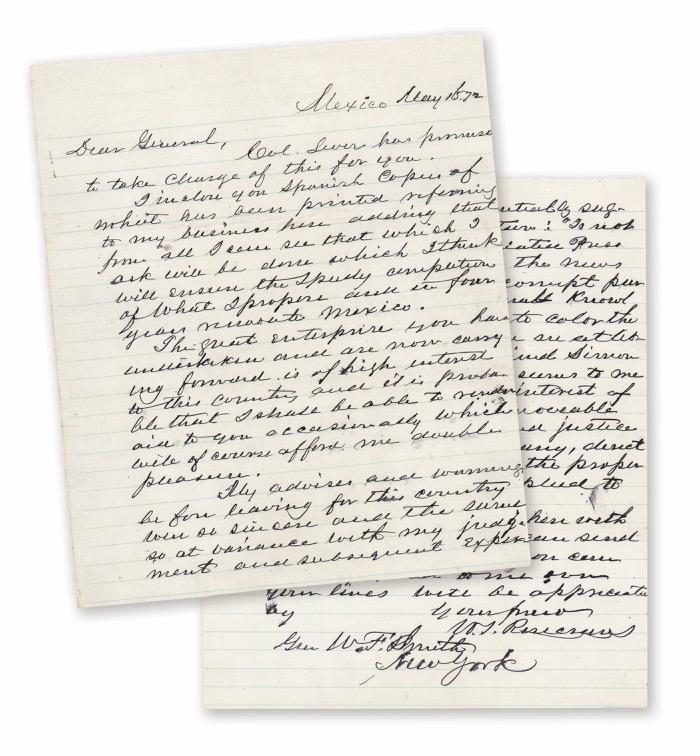 Mexico May 16.72
Dear General,
Col. Sever has promised
to take Charge of this for you.
I inclose you Spanish Copies of
what has been printed referring
to my business here adding that
from all I can see that which I
ask will be done which I think
will ensure the Speedy completion
of What I propose and in four
years renovate Mexico.
The great enterprise you have
undertaken and are now carry
ing forward is of high interest
to this Country and it is proba
ble that I shall be able to render
aid to you occasionally which
will of course afford me double
pleasure.
My advises and warnings
before leaving for this country
were so sincere and the
so at variance with my judge
ment and subsequent exper
ntially sug-
the news
corrupt pur
Knowl
to color the
and
seems to me
interest of
moveable
justice
direct
the proper
to
with
can send
can
come
your lines will be appreciated
by Yours
W. S. Rosecrans
Gen W. F. Smith
New York